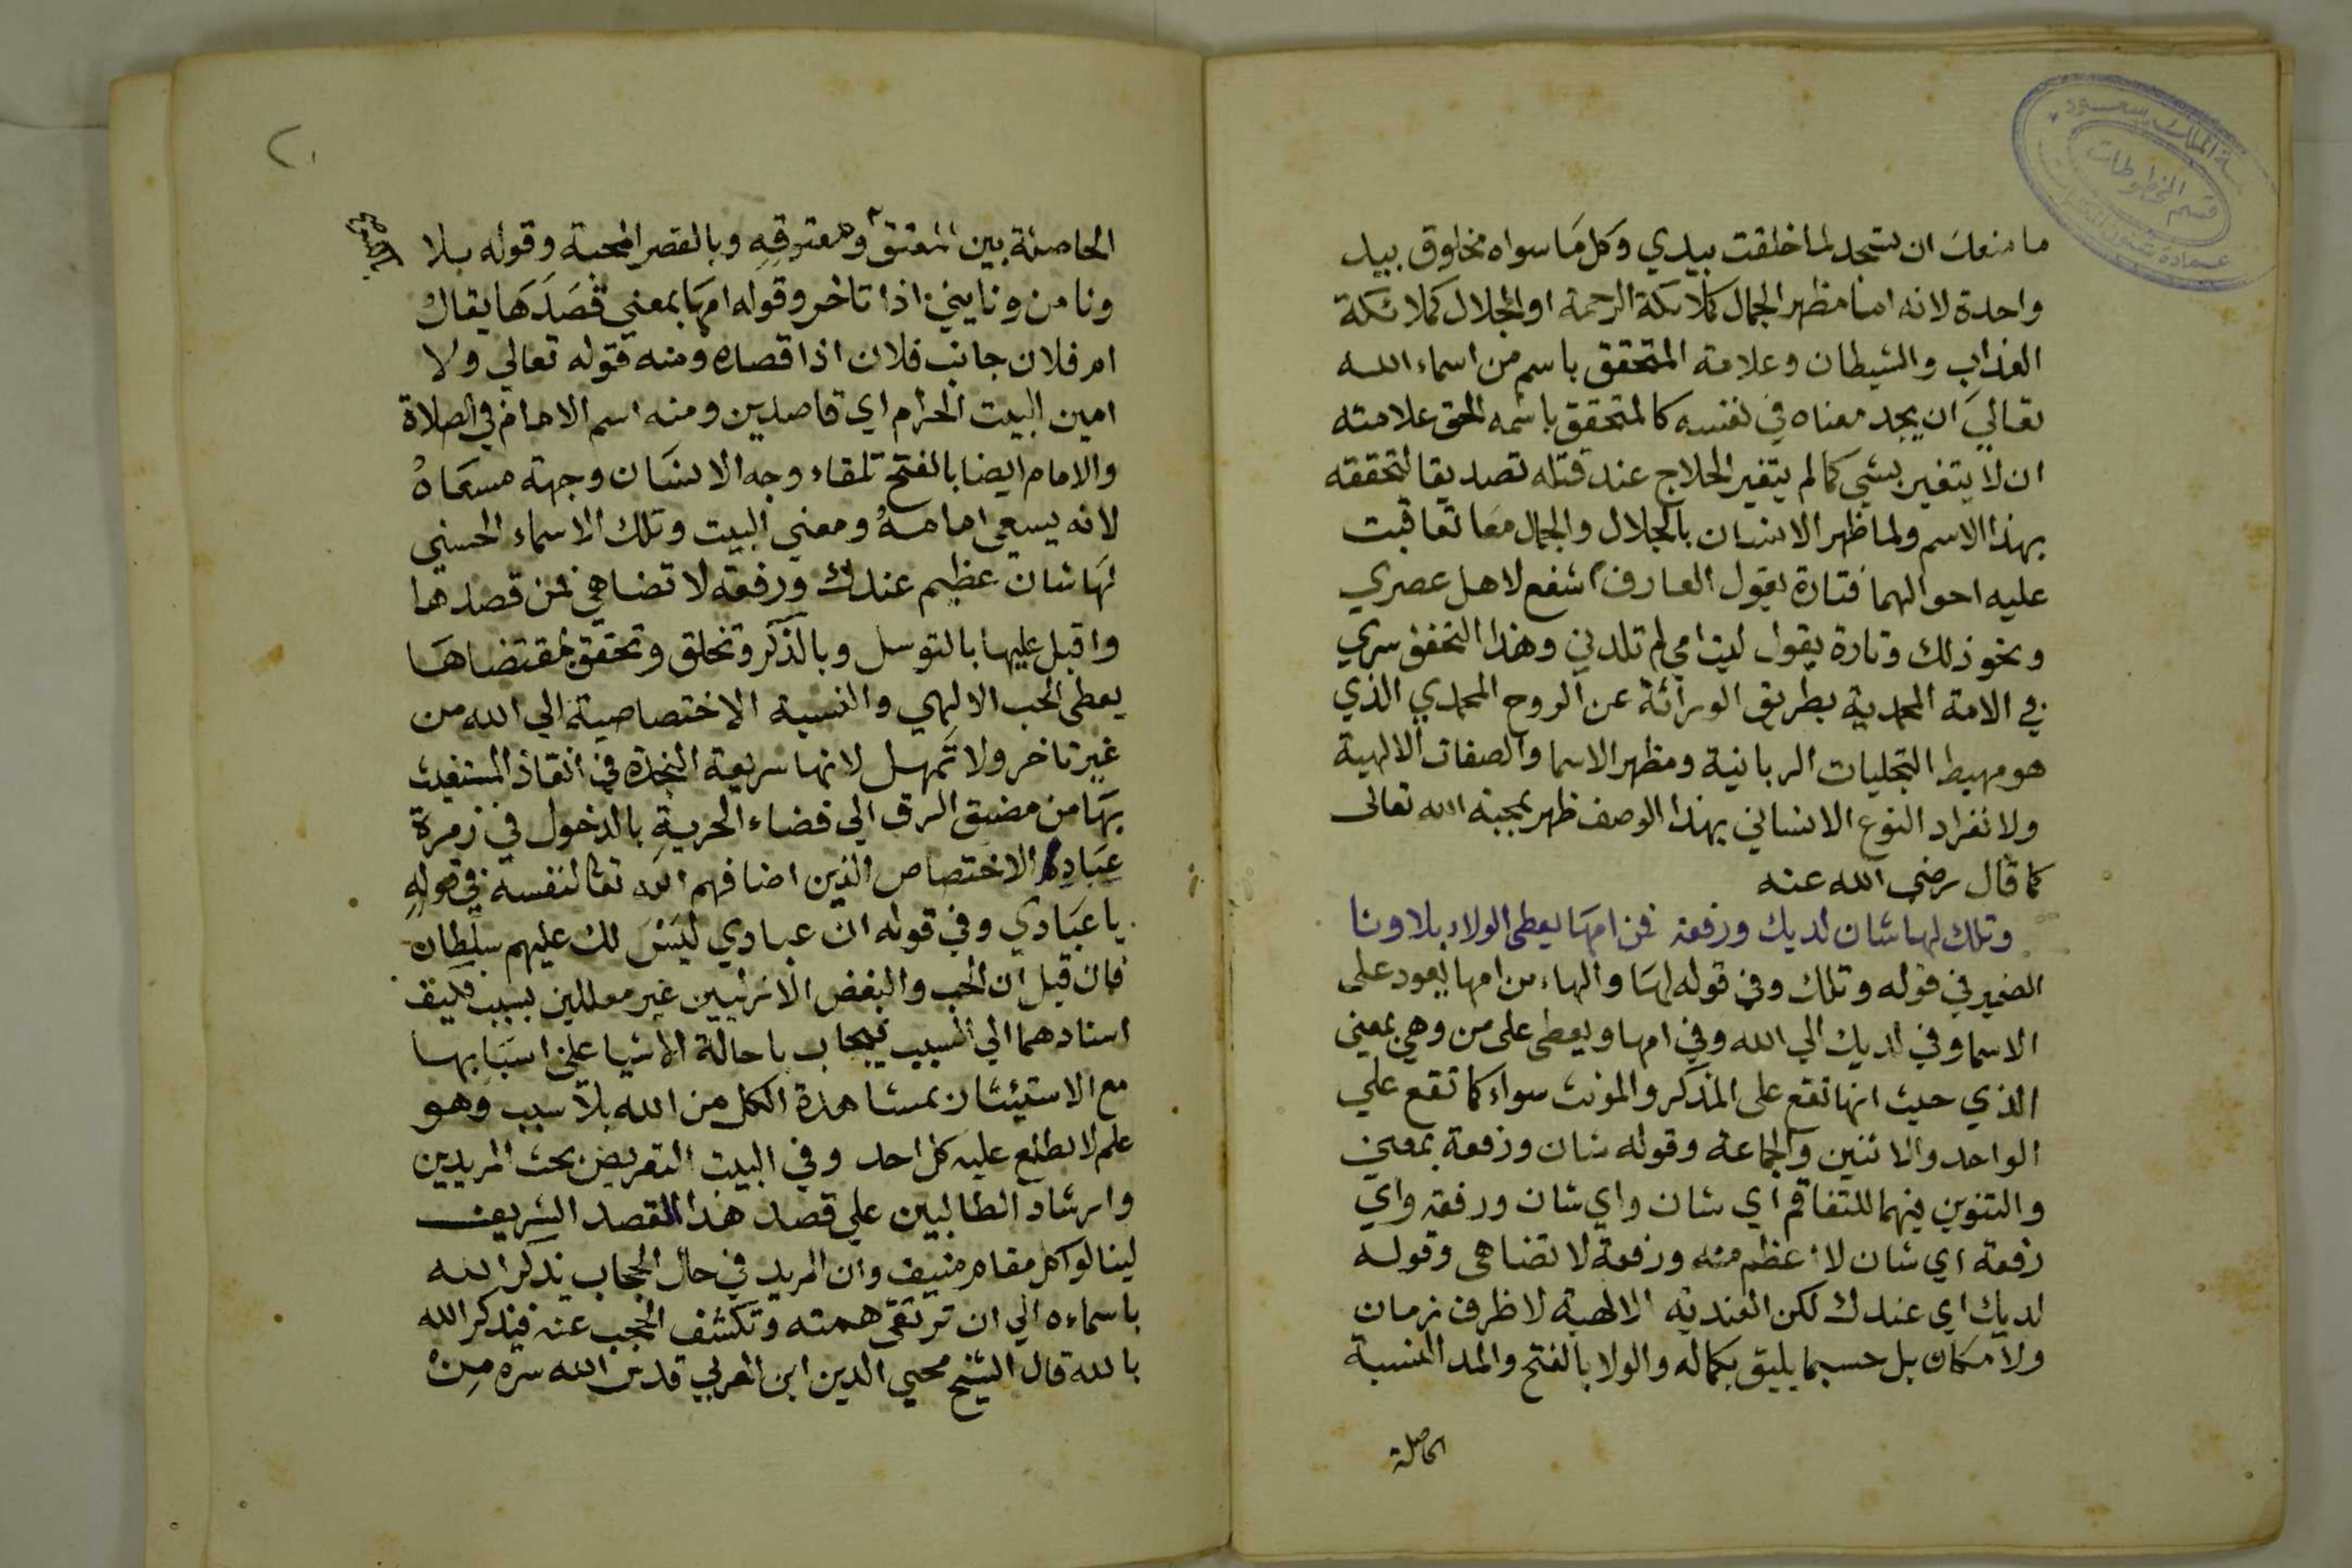 ما منعك ان تسجد لما خلقت بيدي وكل ما سواه مخلوق بيد
واحدة لانه اما مظهر الجمال كملائكة الرحمة او الجلال كملائكة
العذاب والشيطان وعلامة المتحقق باسم من اسماء الله
تعالي ان يجد معناه في نفسه كالمتحقق باسمه الحق علامته
ان لا يتغير بشي كما لم يتغير الحلاج عند قتله تصديقا لتحققه
بهذا الاسم ولما ظهر الانسان بالجلال والجمال معا تعاقبت
عليه احوالهما فتارة يقول العارف اشفع لاهل عصري
ونحو ذلك وتارة يقول ليت امي لم تلدني وهذا التحقق سري
في الامة المحمدية بطريق الوراثة عن الروح المحمدي الذي
هو مهبط التجليات الربانية ومظهر الاسما والصفات الالهية
ولانفراد النوع الانساني بهذا الوصف ظهر بمحبة الله تعالى
كما قال رضي الله عنه
وتلك لها شان لديك ورفعة فمن امها يعطى الولاء بلا ونا
الضمير في قوله وتلك وفي قوله لها والهاء من امها يعود على
الاسما وفي لديك الي الله وفي امها ويعطى على من وهي بمعني
الذي حيث انها تقع على المذكر والمونث سواء كما تقع علي
الواحد والاثنين والجماعة وقوله شان ورفعة بمعني
والتنوين فيهما للتفاقم اي شان واي شان ورفعة واي
رفعة اي شان لا اعظم منه ورفعة لا تضاهى وقوله
لديك اي عندك لكن العندية الالهية لا ظرف زمان
ولا مكان بل حسبما يليق بكماله والولا بالفتح والمد النسبة
الحاصلة
٢٠
الحاصلة بين المعتق ومعتوقه وبالقصر المحبة وقوله بلا
ونا من ونا يني اذا تاخر وقوله امها بمعني قصدها يقال
ام فلان جانب فلان اذا قصده ومنه قوله تعالي ولا
امين البيت الحرام اي قاصدين ومنه اسم الامام في الصلاة
والامام ايضا بالفتح تلقاء وجه الانسان وجهة مسعاه
لانه يسعي امامه ومعني البيت وتلك الاسماء الحسني
لها شان عظيم عندك ورفعة لا تضاهي فمن قصدها
واقبل عليها بالتوسل وبالذكر وتخلق وتحقق بمقتضاها
يعطى الحب الالهي والنسبة الاختصاصية الي الله من
غير تاخر ولا تمهل لانها سريعة النجدة في انقاذ المستغيث
بها من مضيق الرق الي فضاء الحرية بالدخول في زمرة
عباد الاختصاص الذين اضافهم الله تعا لنفسه في قوله
يا عبادي وفي قوله ان عبادي ليس لك عليهم سلطان
فان قيل ان الحب والبغض الازليين غير معللين بسبب فكيف
اسنادهما الي السبب فيجاب باحالة الاشيا على اسبابها
مع الاستيناس بمشاهدة الكل من الله بلا سبب وهو
علم لا يطلع عليه كل احد وفي البيت التعريض بحث المريدين
وارشاد الطالبين علي قصد هذا المقصد الشريف
لينالوا كل مقام منيف وان المريد في حال الحجاب يذكر الله
باسماءه الي ان ترتقي همته وتكشف الحجب عنه فيذكر الله
بالله قال الشيخ محيي الدين ابن العربي قدس الله سره من